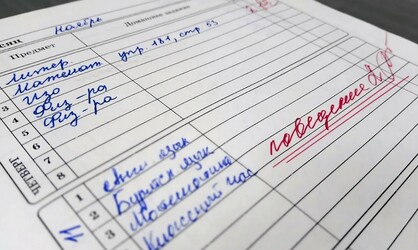 ноябрь
Предмет
Домашнее задание
литер
Математ упр. 181, стр 53
ИЗО
3 Физ-ра
4 Физ-ра
5
6
7
8
поведение
ЧЕТВЕРГ
11
1 Англ язык
2 Бурятск язык
3 Математика
Классный час